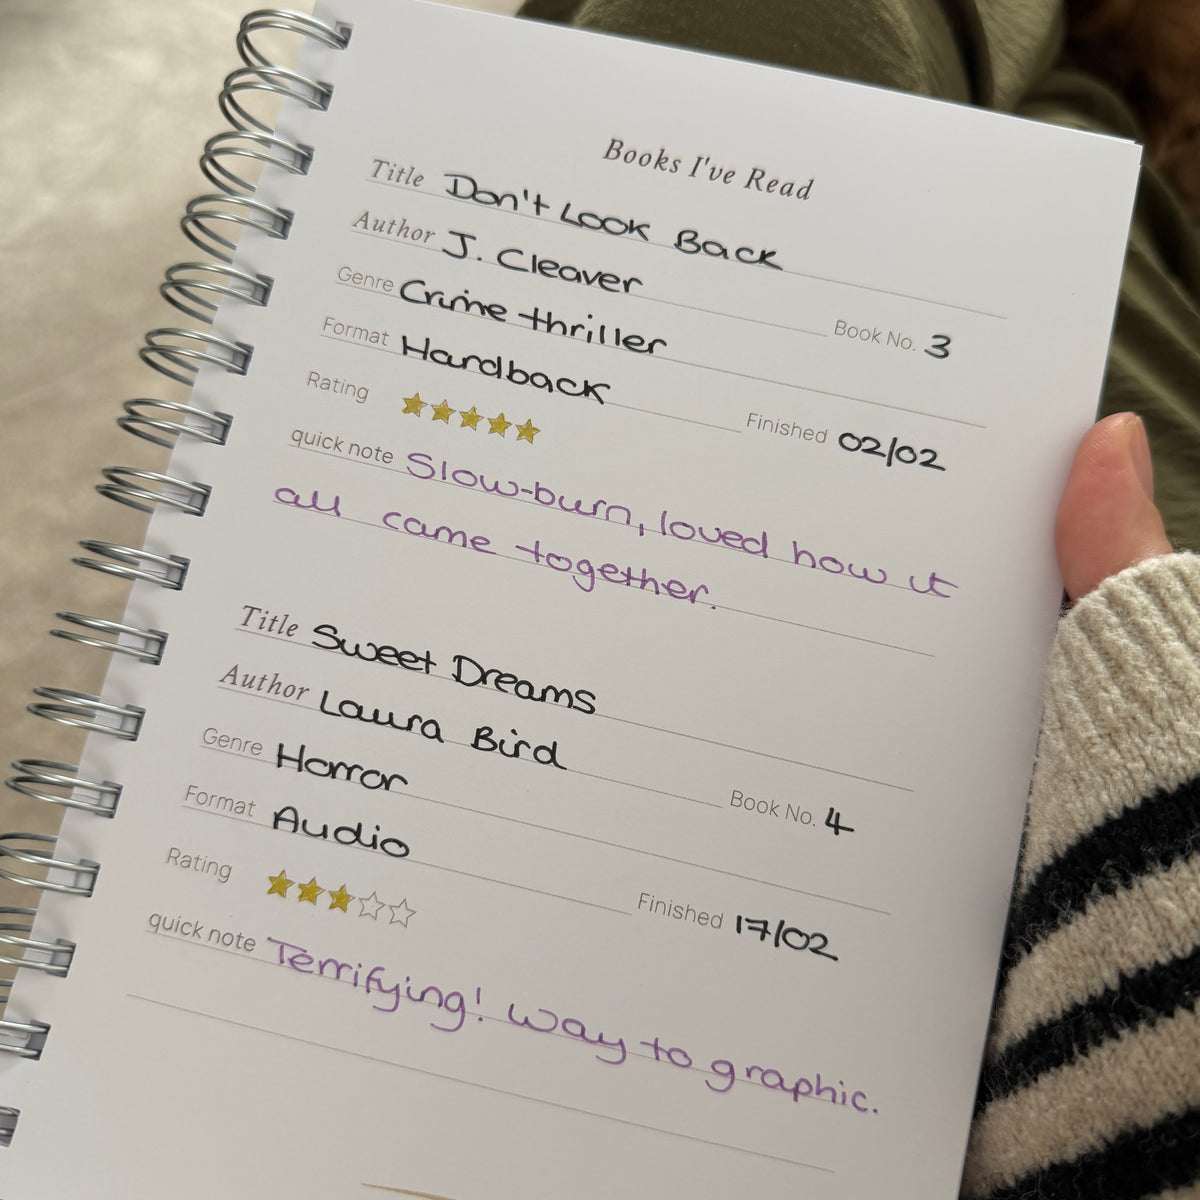 Books I've Read
Title Don't Look Back
Author J. Cleaver Book No. 3
Genre Crime thriller
Format Hardback Finished 02/02
Rating
quick note Slow-burn, loved how it
all came together.
Title Sweet Dreams
Author Laura Bird Book No. 4
Genre Horror
Format Audio Finished 17/02
Rating
quick note Terrifying! Way to graphic.